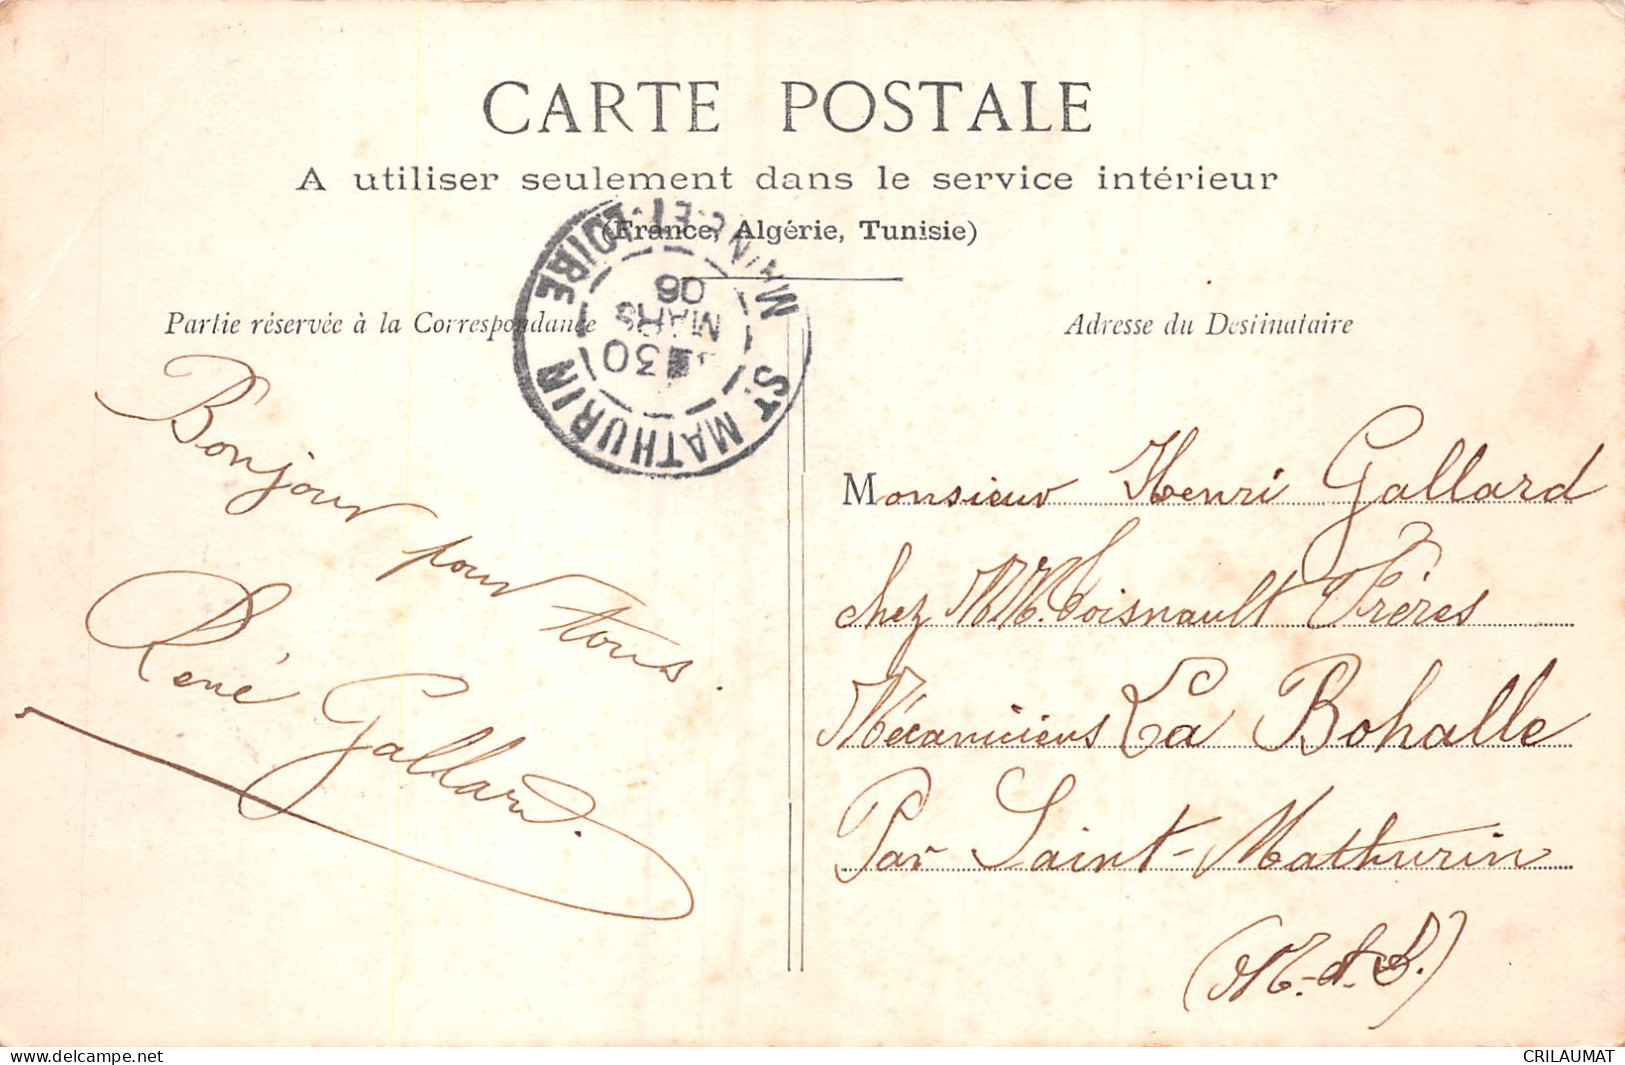 CARTE POSTALE
A utiliser seulement dans le service intérieur
(France, Algérie, Tunisie)
Partie réservée à la Correspondance
Adresse du Destinataire
ST MATHURIN
MAINE-ET-LOIRE
30
MARS
06
Bonjour pour tous.
René Gallard.
Monsieur Henri Gallard
chez MM. Loisnault Frères
Mécaniciens La Bohalle
Par Saint-Mathurin
(M.-et-L.)
delcampe.net
CRILAUMAT